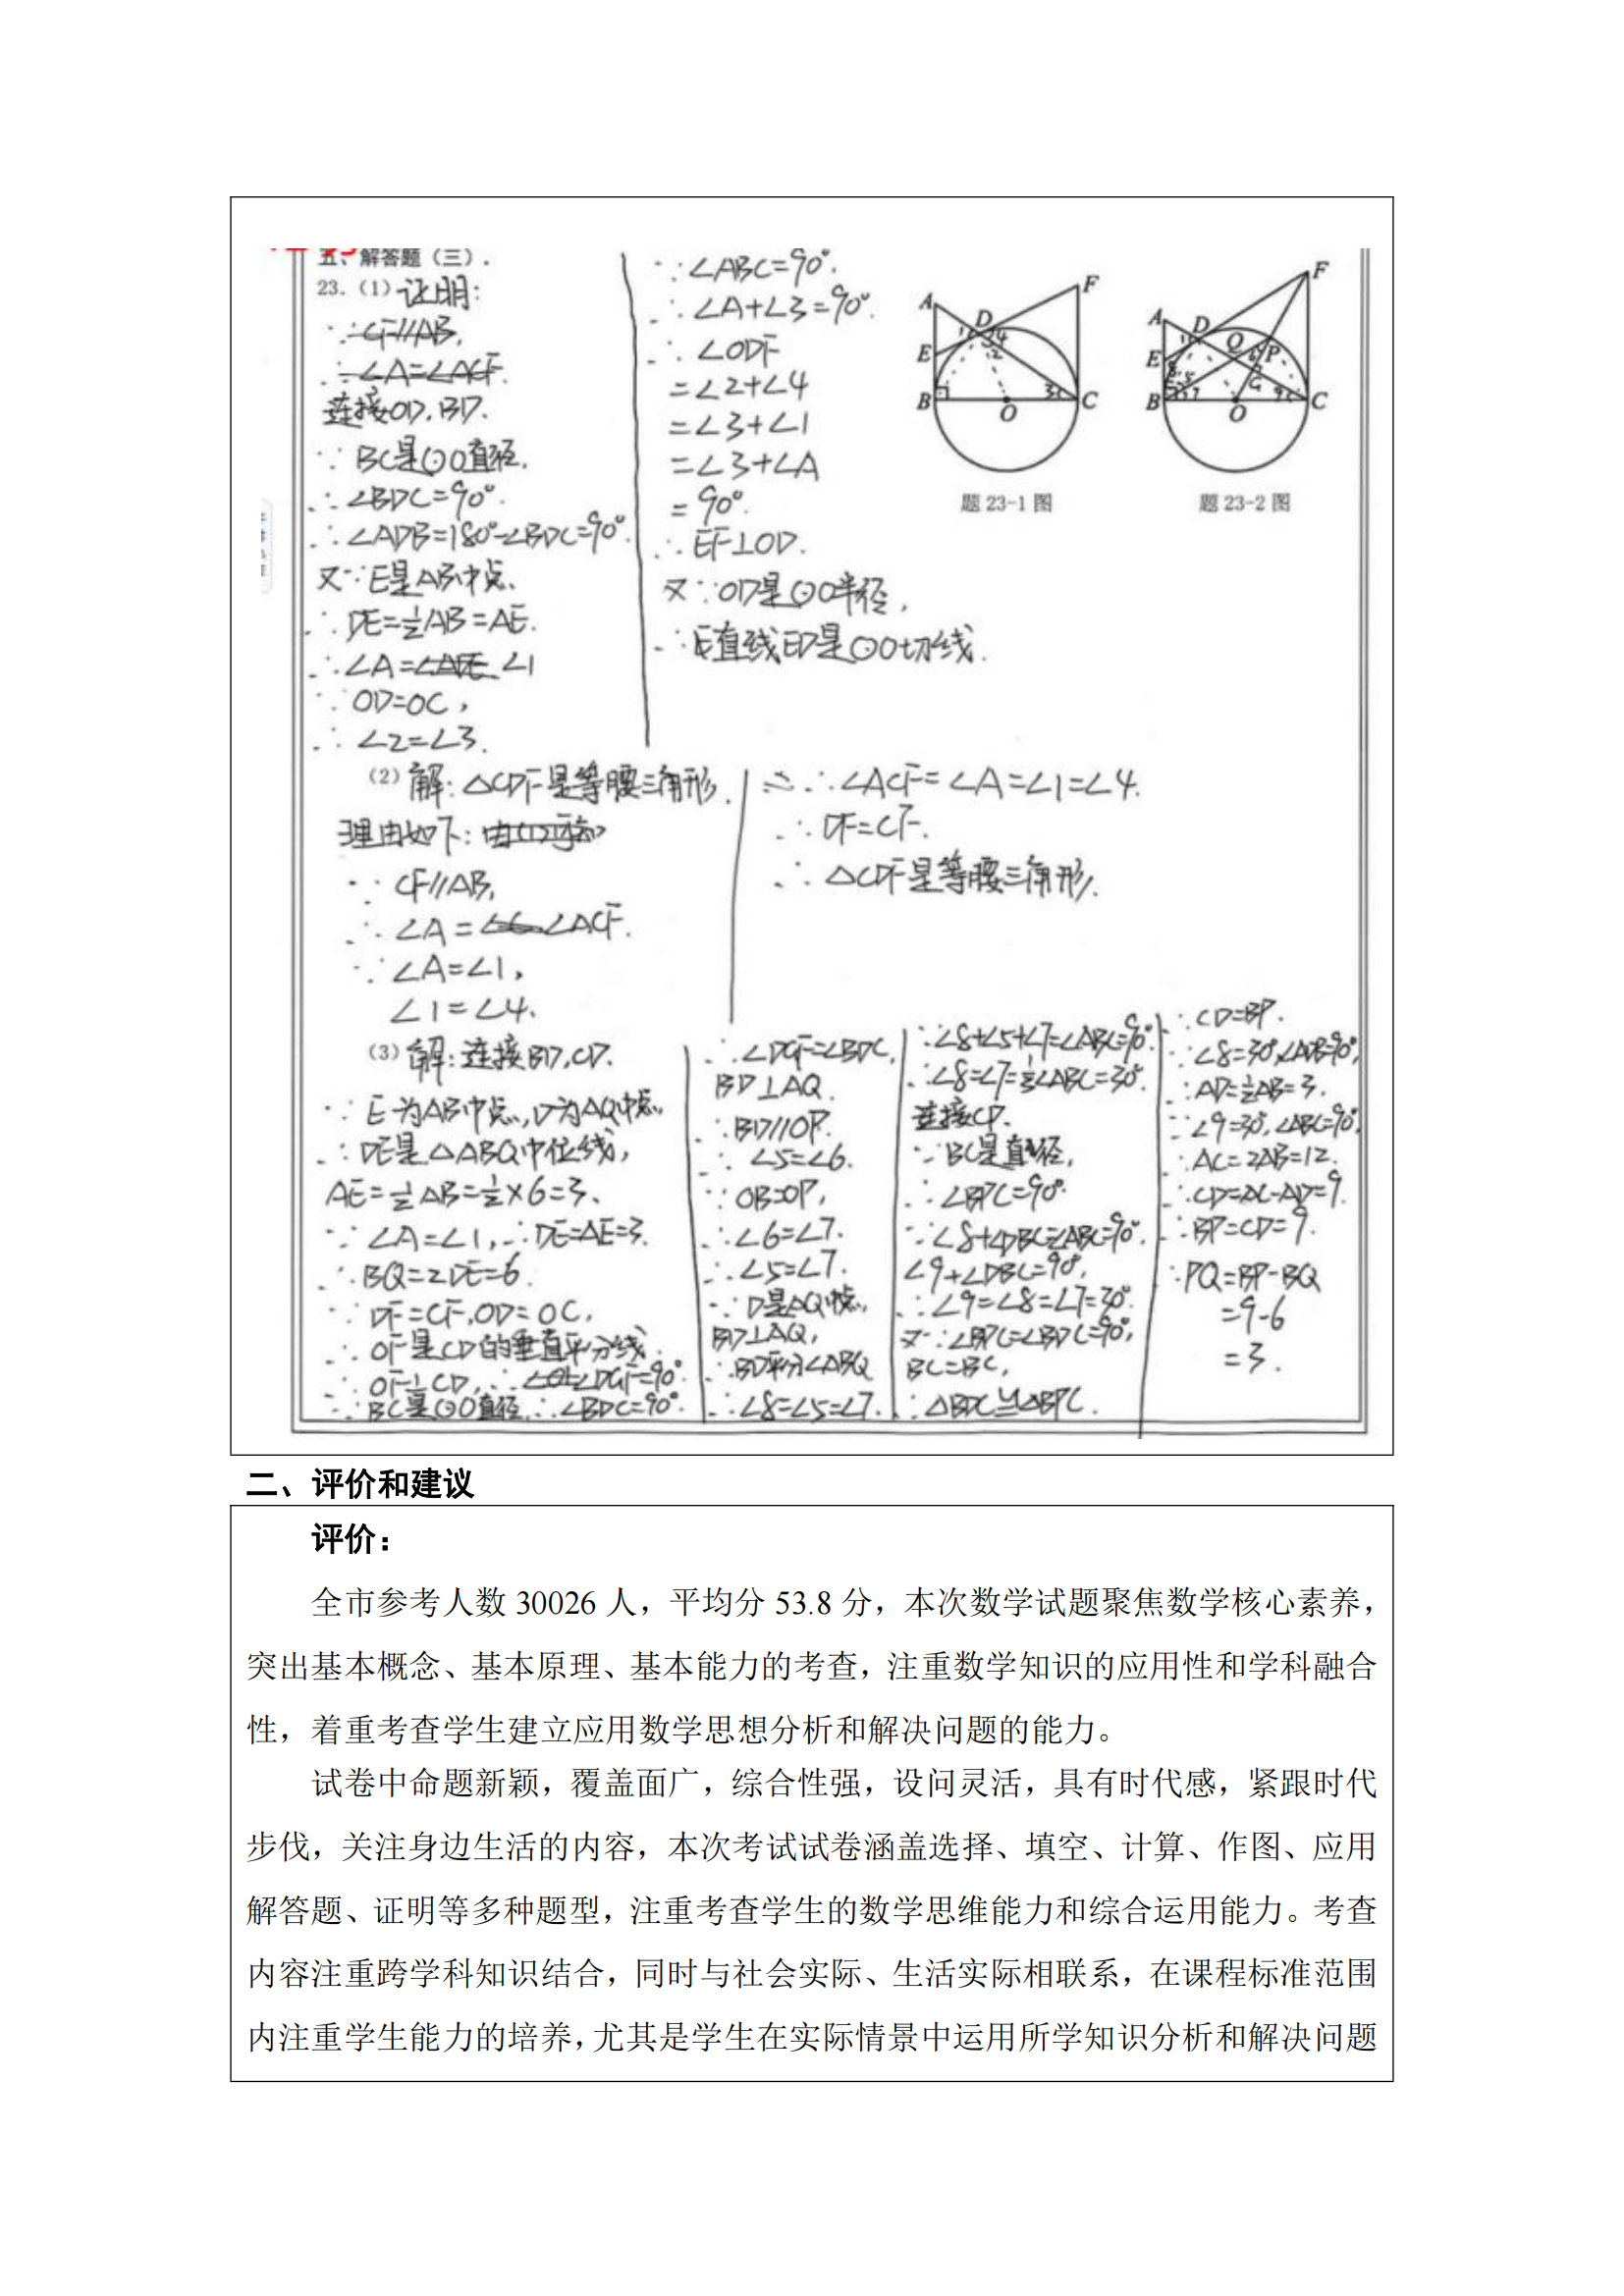 五、解答题（三）.
23.（1）证明：
∵CF//AB,
∴∠A=∠ACF.
连接OD,BD.
∵BC是⊙O直径.
∴∠BDC=90°.
∴∠ADB=180°-∠BDC=90°.
又∵E是AB中点.
∴DE=½AB=AE.
∴∠A=∠ADE ∠1
∵OD=OC，
∴∠2=∠3.
∵∠ABC=90°.
∴∠A+∠3=90°.
∴∠ODF
=∠2+∠4
=∠3+∠1
=∠3+∠A
=90°.
∴EF⊥OD.
又∵OD是⊙O半径，
∴E直线ED是⊙O切线.
A
D
F
E
B
O
C
1
4
2
3
题 23-1 图
A
D
Q
P
F
E
B
O
C
G
题 23-2 图
（2）解：△CDF是等腰三角形.
理由如下：由(1)可知
∵CF//AB,
∴∠A=∠6 ∠ACF.
∵∠A=∠1,
∠1=∠4.
∴∠ACF=∠A=∠1=∠4.
∴DF=CF.
∴△CDF是等腰三角形.
（3）解：连接BD,CD.
∵E为AB中点,D为AQ中点,
∴DE是△ABQ中位线,
AE=½AB=½×6=3.
∵∠A=∠1,∴DE=AE=3.
∴BQ=2DE=6.
∵DF=CF,OD=OC,
∴OF是CD的垂直平分线.
∴OF⊥CD,∴∠DGF=90°.
∵BC是⊙O直径,∴∠BDC=90°.
∴∠DGF=∠BDC,
BD⊥AQ.
∴BD//OP.
∴∠5=∠6.
∵OB=OP,
∴∠6=∠7.
∴∠5=∠7.
∵D是AQ中点,
BD⊥AQ,
∴BD平分∠ABQ
∴∠8=∠5=∠7.
∵∠8+∠5+∠7=∠ABC=90°.
∴∠8=∠7=⅓∠ABC=30°.
连接CP.
∵BC是直径,
∴∠BPC=90°.
∵∠8+∠DBC=∠ABC=90°.
∠9+∠DBC=90°,
∴∠9=∠8=∠7=30°.
又∵∠BPC=∠BDC=90°,
BC=BC,
∴△BDC≌△BPC.
∴CD=BP.
∵∠8=30°,∠ADB=90°,
∴AD=½AB=3.
∵∠9=30°,∠ABC=90°,
∴AC=2AB=12.
∴CD=AC-AD=9.
∴BP=CD=9.
∴PQ=BP-BQ
=9-6
=3.
二、评价和建议
评价：
全市参考人数 30026 人，平均分 53.8 分，本次数学试题聚焦数学核心素养，
突出基本概念、基本原理、基本能力的考查，注重数学知识的应用性和学科融合
性，着重考查学生建立应用数学思想分析和解决问题的能力。
试卷中命题新颖，覆盖面广，综合性强，设问灵活，具有时代感，紧跟时代
步伐，关注身边生活的内容，本次考试试卷涵盖选择、填空、计算、作图、应用
解答题、证明等多种题型，注重考查学生的数学思维能力和综合运用能力。考查
内容注重跨学科知识结合，同时与社会实际、生活实际相联系，在课程标准范围
内注重学生能力的培养，尤其是学生在实际情景中运用所学知识分析和解决问题